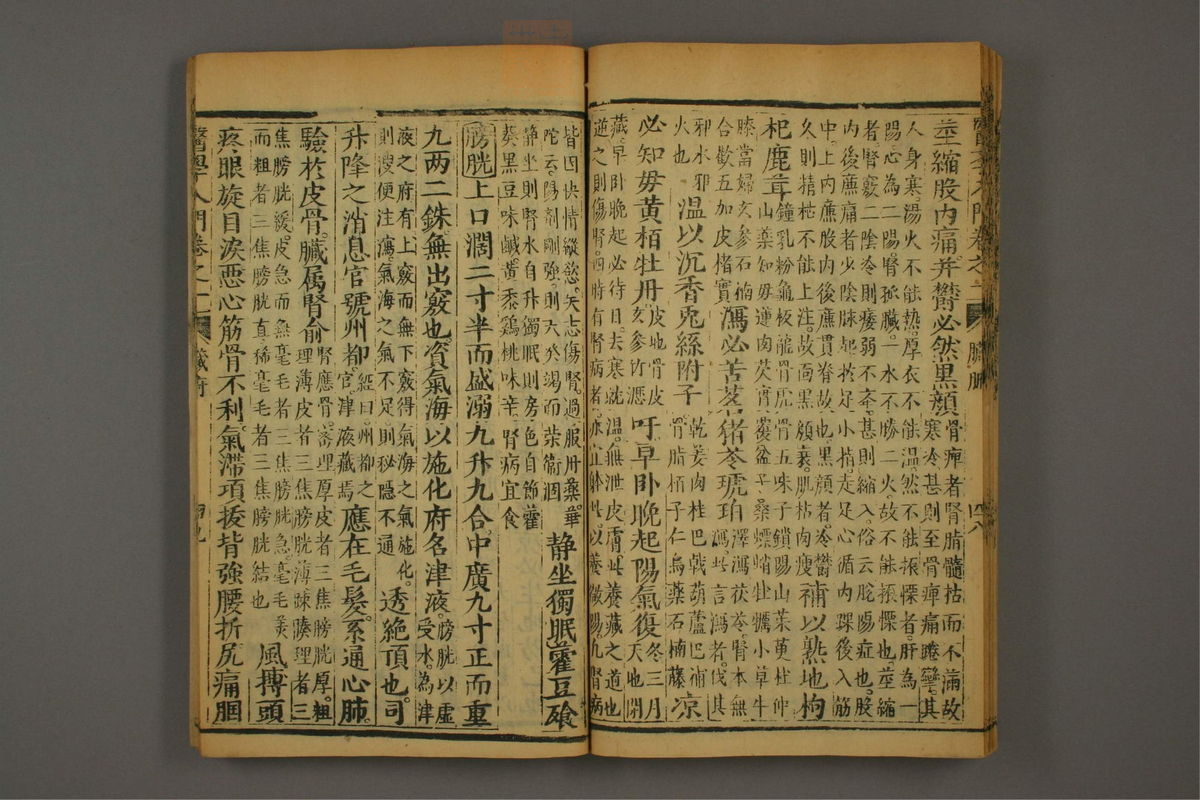 莖縮股内痛并臖必然黑顔
骨痺者腎脂髓枯而不滿故
寒冷甚則至骨痺痛踡攣其
人身寒湯火不能熱厚衣不能温然不能振慄者肝為一
陽心為二陽腎孤臟一水不勝二火故不能振慄也莖縮
者腎竅二陰冷則痿弱不舉甚則縮入俗云脱陽症也股
内後廉痛者少陰脉起於足小指走足心循内踝後入筋
中上内廉股内後廉貫脊故也黑顔者冷臖
久則精枯不能上注故面黑顔衰肌枯肉瘦
補以熟地枸
杞鹿茸
鐘乳粉龜板龍骨虎骨五味子鎖陽山茱萸杜仲
山藥知毋蓮肉芡實覆盆子桑螵蛸牡蠣小草牛
膝當歸玄參石楠
合歡五加皮楮實
瀉必苦茗猪苓琥珀
澤瀉茯苓腎本無
瀉此言瀉者伐其
邪水邪
火也
温以沉香兎絲附子
乾姜肉桂巴戟葫蘆巴補
骨脂栢子仁烏藥石楠藤
凉
必知毋黄栢牡丹
皮地骨皮
玄參竹瀝
吁早卧晚起陽氣復
冬三月
天地閉
藏早卧晚起必待日去寒就温無泄皮膚此養藏之道也
逆之則傷腎四時有腎病者亦宜於此以養微陽凡腎病
皆因快情縱慾失志傷腎過服丹藥華
陀云陽劑剛強則天癸竭而榮衛涸
静坐獨眠藿豆飱
静坐則腎水自升獨眠則房色自節藿
葵黑豆味鹹黄黍鷄桃味辛腎病宜食
膀胱上口濶二寸半而盛溺九升九合中廣九寸正而重
九两二銖無出竅也資氣海以施化府名津液
膀胱以虚
受水為津
液之府有上竅而無下竅得氣海之氣施化
則溲便注瀉氣海之氣不足則秘隱不通
透絶頂也司
升降之消息官號州都
經曰州都之
官津液藏焉
應在毛髮系通心肺
驗於皮骨臟属腎俞
腎應骨密理厚皮者三焦膀胱厚粗
理薄皮者三焦膀胱薄疎腠理者三
焦膀胱緩皮急而無毫毛者三焦膀胱急毫毛美
而粗者三焦膀胱直稀毫毛者三焦膀胱結也
風搏頭
疼眼旋目淚惡心筋骨不利氣滯項拔背強腰折尻痛膕
醫學入門卷之一
臓府
四九